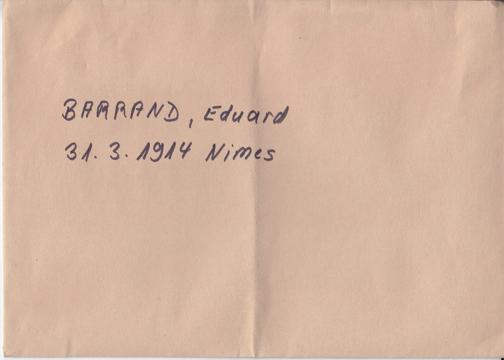 BARRAND, Eduard
31. 3. 1914 Nimes